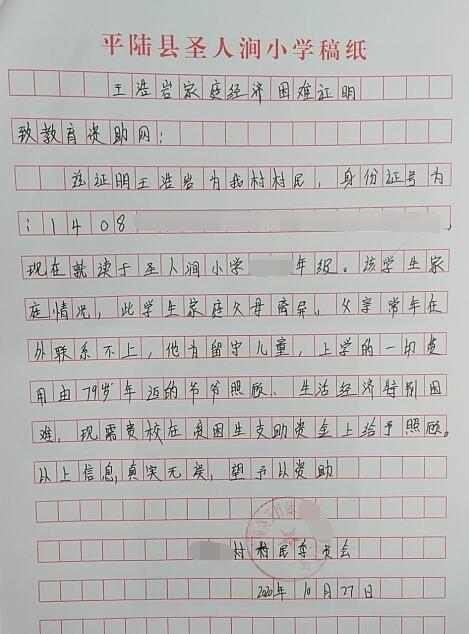 平陆县圣人涧小学稿纸
王浩岩家庭经济困难证明
致教育资助网：
兹证明王浩岩为我村村民，身份证号为
：1408
现在就读于圣人涧小学 年级。该学生家
庭情况，此学生家庭父母离异、父亲常年在
外联系不上，他为留守儿童，上学的一切费
用由79岁年迈的爷爷照顾、生活经济特别困
难，现需贵校在贫困生支助资金上给予照顾。
以上信息，真实无误，望予以资助
村村民委员会
2020年10月27日